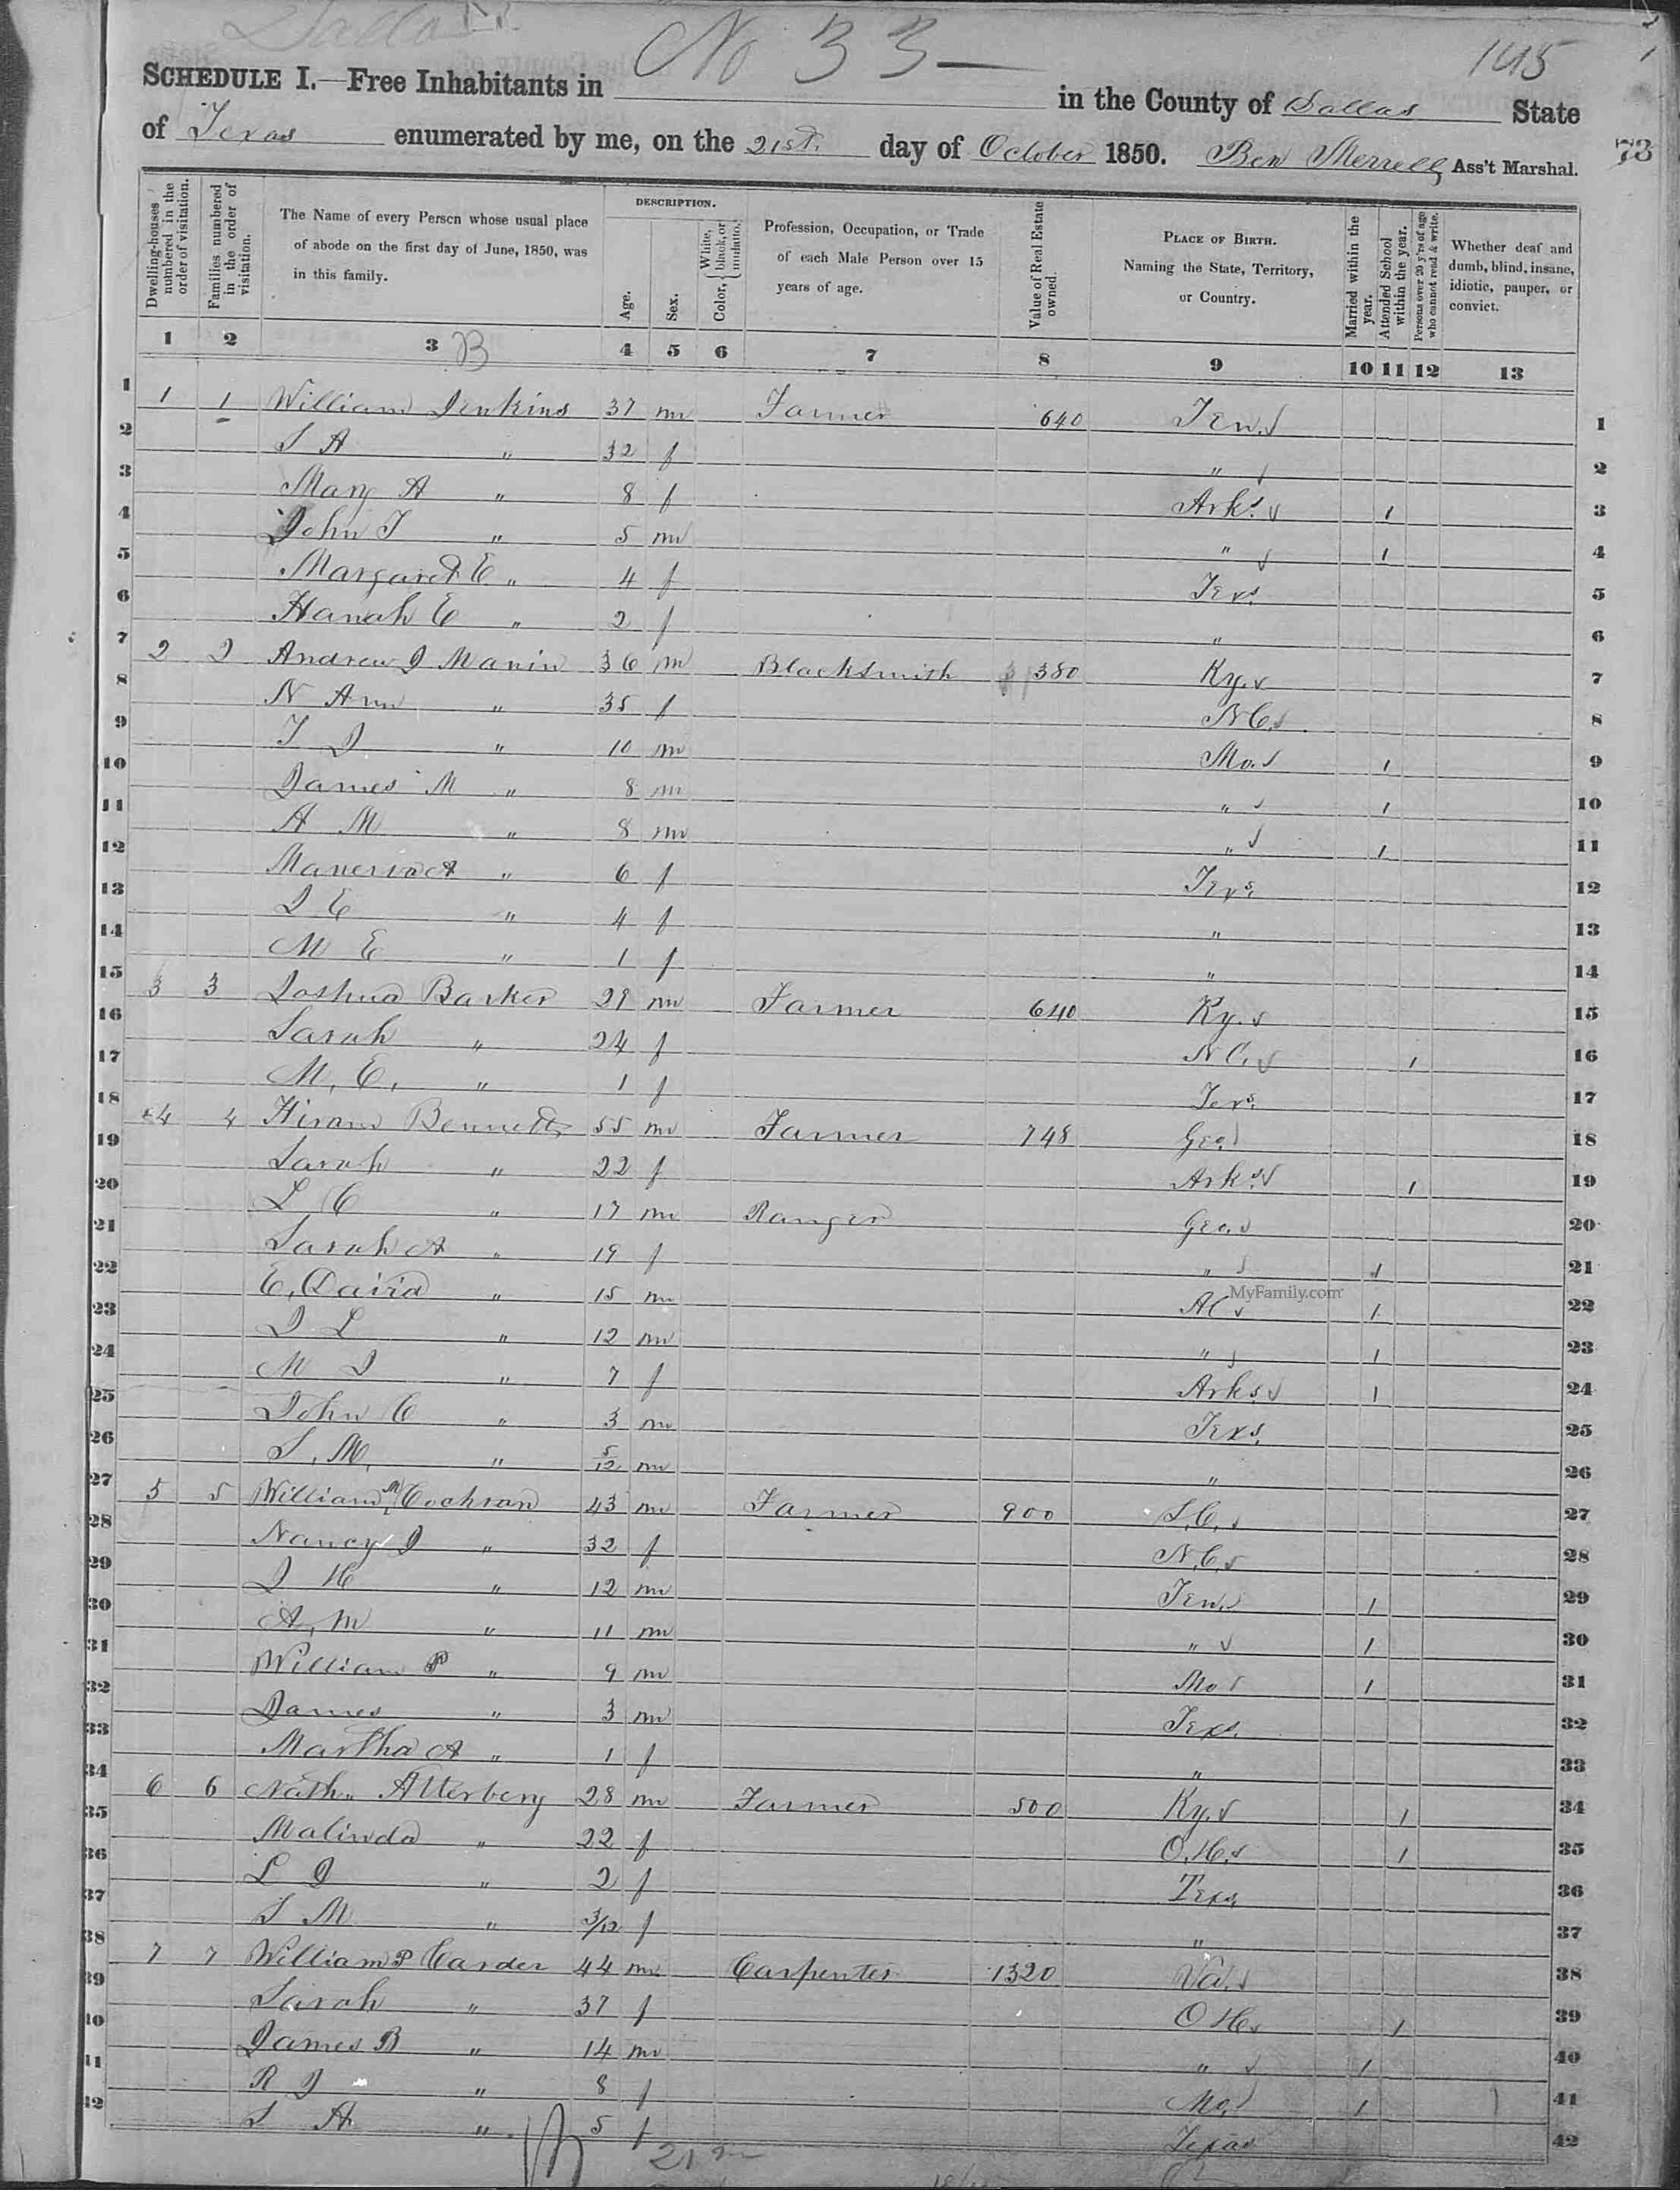 Dallas
No 33
145
SCHEDULE I.—Free Inhabitants in
in the County of Dallas State
of Texas enumerated by me, on the 21st. day of October 1850. Ben Merrell Ass't Marshal.
73
Dwelling-houses numbered in the order of visitation.
Families numbered in the order of visitation.
The Name of every Person whose usual place of abode on the first day of June, 1850, was in this family.
DESCRIPTION.
Age.
Sex.
Color, { White, black, or mulatto.
Profession, Occupation, or Trade of each Male Person over 15 years of age.
Value of Real Estate owned.
PLACE OF BIRTH. Naming the State, Territory, or Country.
Married within the year.
Attended School within the year.
Persons over 20 y'rs of age who cannot read & write.
Whether deaf and dumb, blind, insane, idiotic, pauper, or convict.
1 2 3 B 4 5 6 7 8 9 10 11 12 13
1 1 1 William Jenkins 37 m Farmer 640 Ten. 1
2 S A " 32 f " 2
3 Mary A " 8 f Arks. 1 3
4 John T " 5 m " 1 4
5 Margaret E " 4 f Texs. 5
6 Hanah E " 2 f " 6
7 2 2 Andrew J Manin 36 m Blacksmith 380 Ky. 7
8 N Ann " 35 f N C. 8
9 T J " 10 m Mo. 1 9
10 James M " 8 m " 1 10
11 A M " 8 m " 1 11
12 Manerva A " 6 f Texs. 12
13 J E " 4 f " 13
14 M E " 1 f " 14
15 3 3 Joshua Barker 29 m Farmer 640 Ky. 15
16 Sarah " 24 f N C. 1 16
17 M. E. " 1 f Texs. 17
18 4 4 Hiram Bennett 55 m Farmer 748 Geo. 18
19 Sarah " 22 f Arks. 1 19
20 L C " 17 m Ranger Geo. 20
21 Sarah A " 19 f " 1 21
22 E. David " 15 m MyFamily.com 1 22
23 J L " 12 m " 1 23
24 M J " 7 f Arks. 1 24
25 John C " 3 m Texs. 25
26 S. M. " 5/12 m " 26
27 5 5 William M Cochran 43 m Farmer 900 S.C. 27
28 Nancy J " 32 f N.C. 28
29 J H " 12 m Ten. 1 29
30 A. M " 11 m " 1 30
31 William P " 9 m Mo 1 31
32 James " 3 m Texs. 32
33 Martha A " 1 f " 33
34 6 6 Nath. Atterbery 28 m Farmer 500 Ky. 1 34
35 Malinda " 22 f O.H. 1 35
36 L J " 2 f Texs. 36
37 S M " 3/12 f " 37
38 7 7 William P Carder 44 m Carpenter 1320 Va. 38
39 Sarah " 37 f O H 1 39
40 James B " 14 m " 1 40
41 R J " 8 f Mo. 1 41
42 S A " 5 f Texas 42
21 m